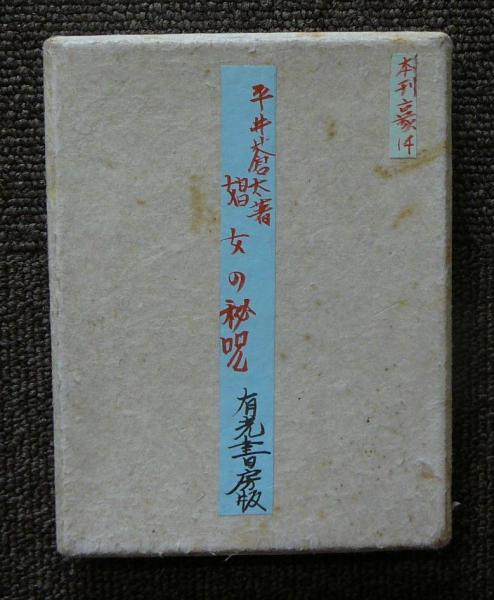 本刊豪14
平井蒼太著
媚女の秘呪
有光書房版